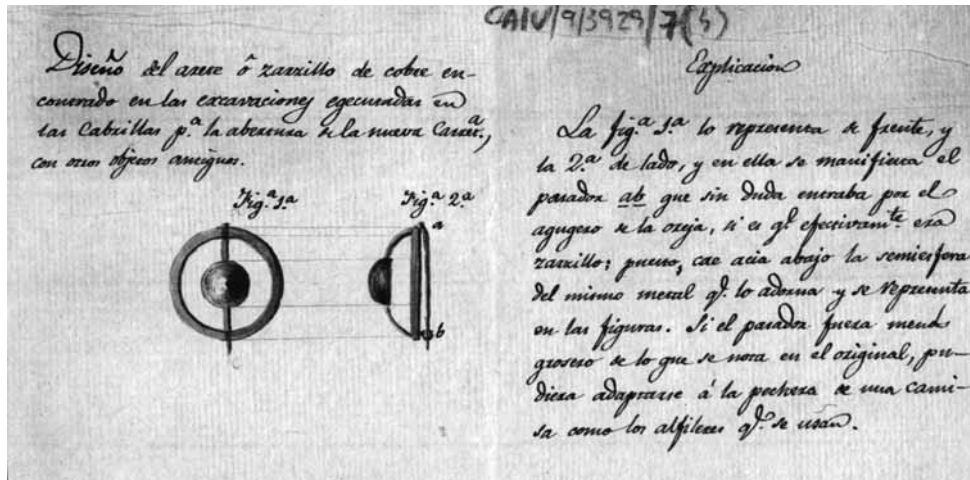 CAIV/9/3929/7(5)
Diseño del arete ô zarzillo de cobre en-
contrado en las excavaciones egecutadas en
las Cabrillas p.a la abertura de la nueva Carret.a,
con otros objetos antiguos.
Fig.a 1.a
Fig.a 2.a
a
b
Explicacion
La fig.a 1.a lo representa de frente, y
la 2.a de lado, y en ella se manifiesta el
pasador ab que sin duda entraba por el
agugero de la oreja, si es q.e efectivam.te era
zarzillo; puesto, cae acia abajo la semiesfera
del mismo metal q.e lo adorna y se representa
en las figuras. Si el pasador fuera menos
grosero de lo que se nota en el original, pu-
diera adaptarse á la pechera de una cami-
sa como los alfileres q.e se usan.